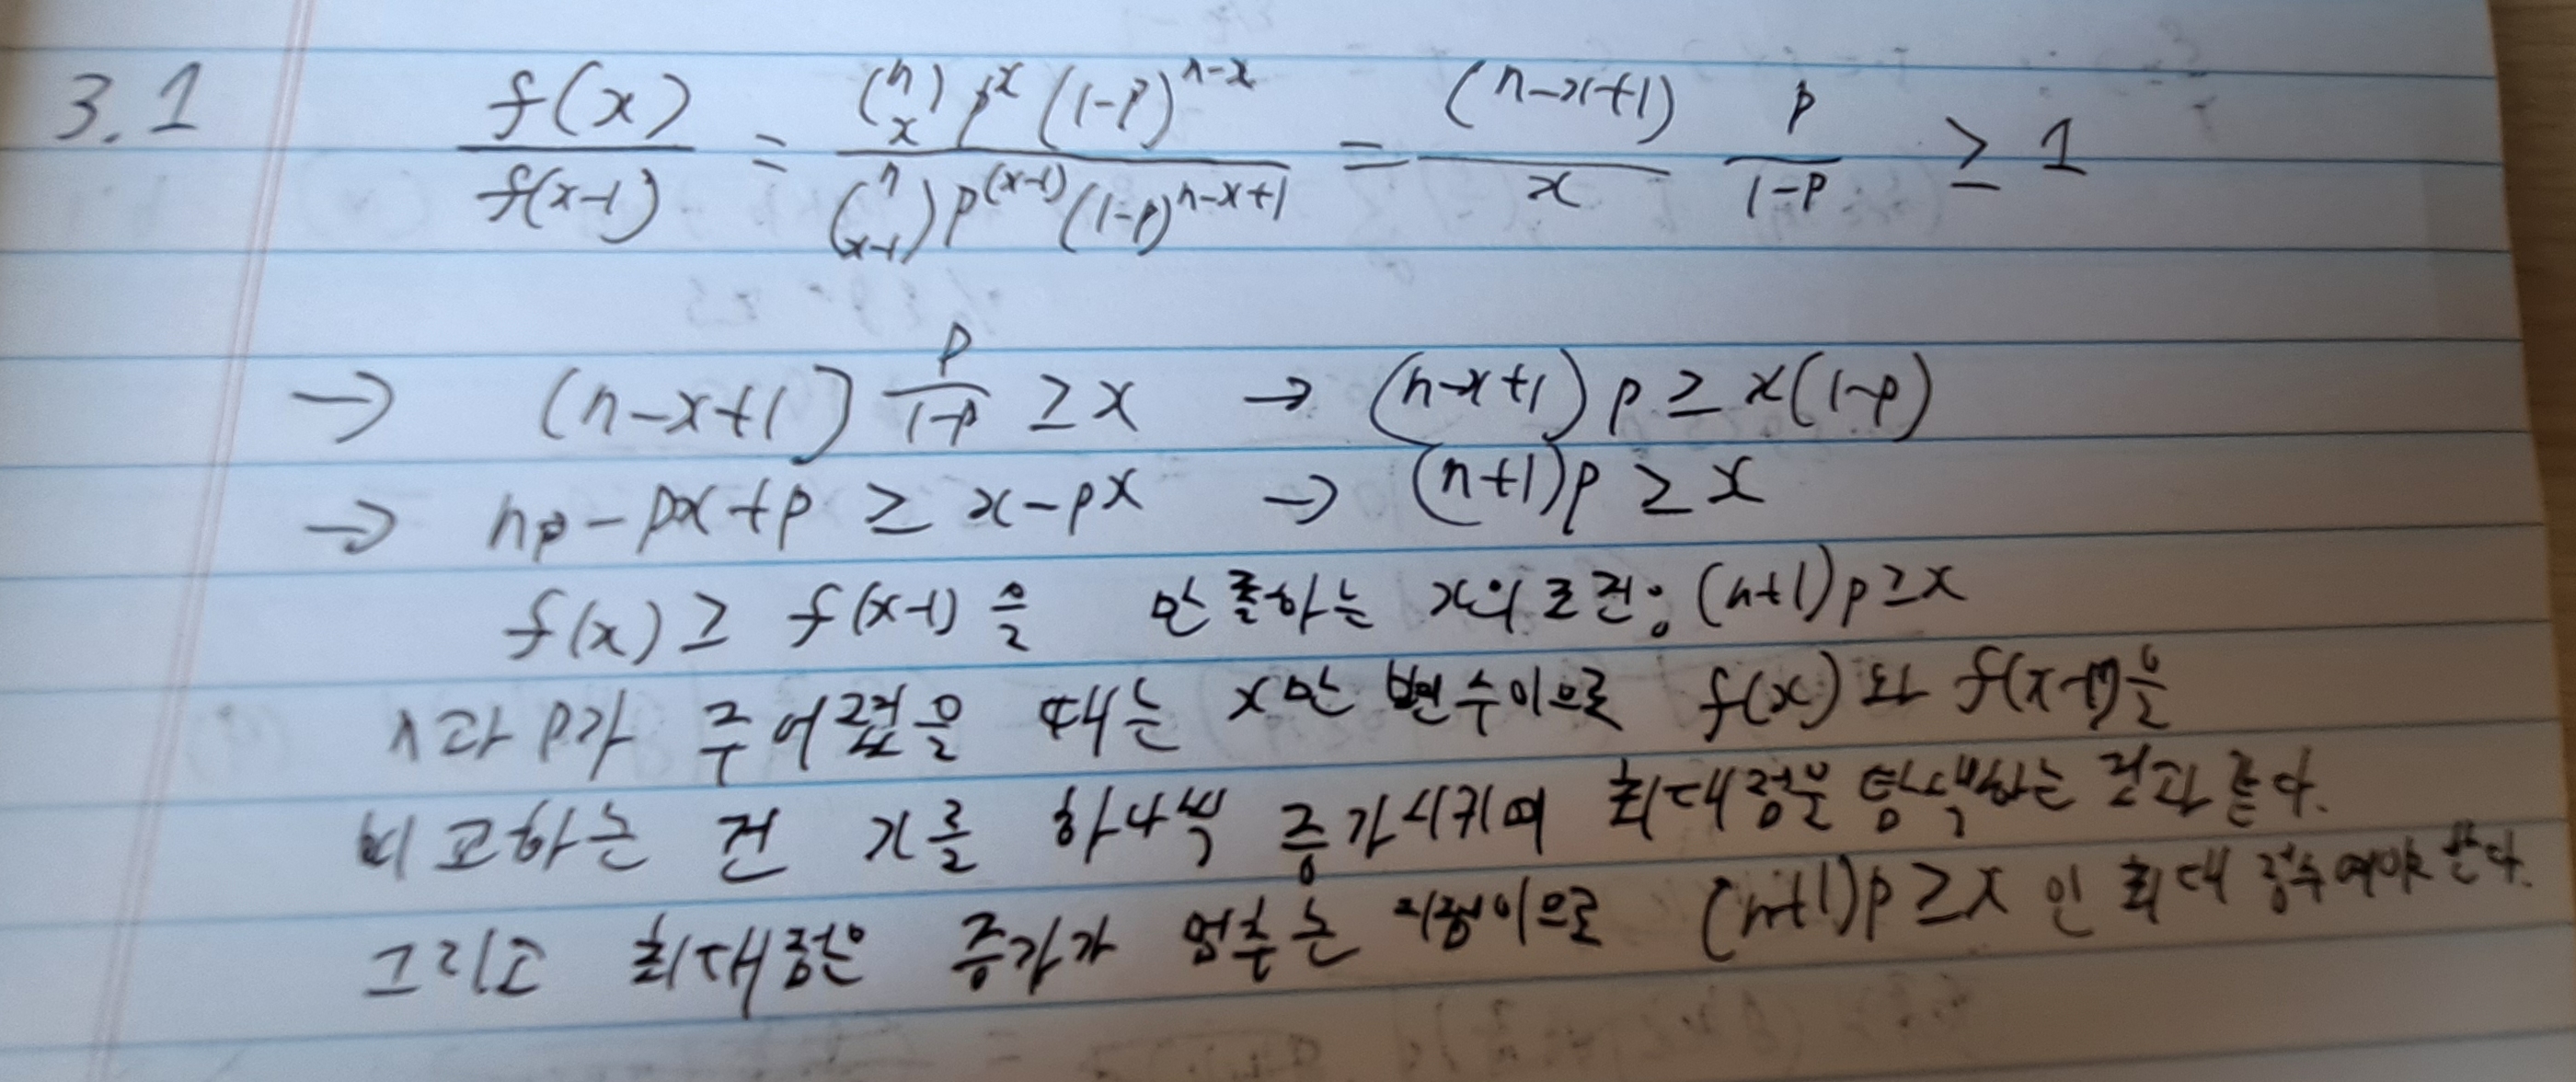 3.1 f(x)/f(x-1) = (n x) p^x (1-p)^{n-x} / (n x-1) p^{(x-1)} (1-p)^{n-x+1} = (n-x+1)/x p/(1-p) ≥ 1
→ (n-x+1) p/(1-p) ≥ x → (n-x+1) p ≥ x(1-p)
→ np - px + p ≥ x - px → (n+1)p ≥ x
f(x) ≥ f(x-1)을 만족하는 x의 조건: (n+1)p ≥ x
n과 p가 주어졌을 때는 x만 변수이므로 f(x)와 f(x-1)을
비교하는 건 x를 하나씩 증가시키며 최대점을 탐색하는 것과 같다.
그리고 최대점은 증가가 멈추는 지점이므로 (n+1)p ≥ x 인 최대 정수여야 한다.